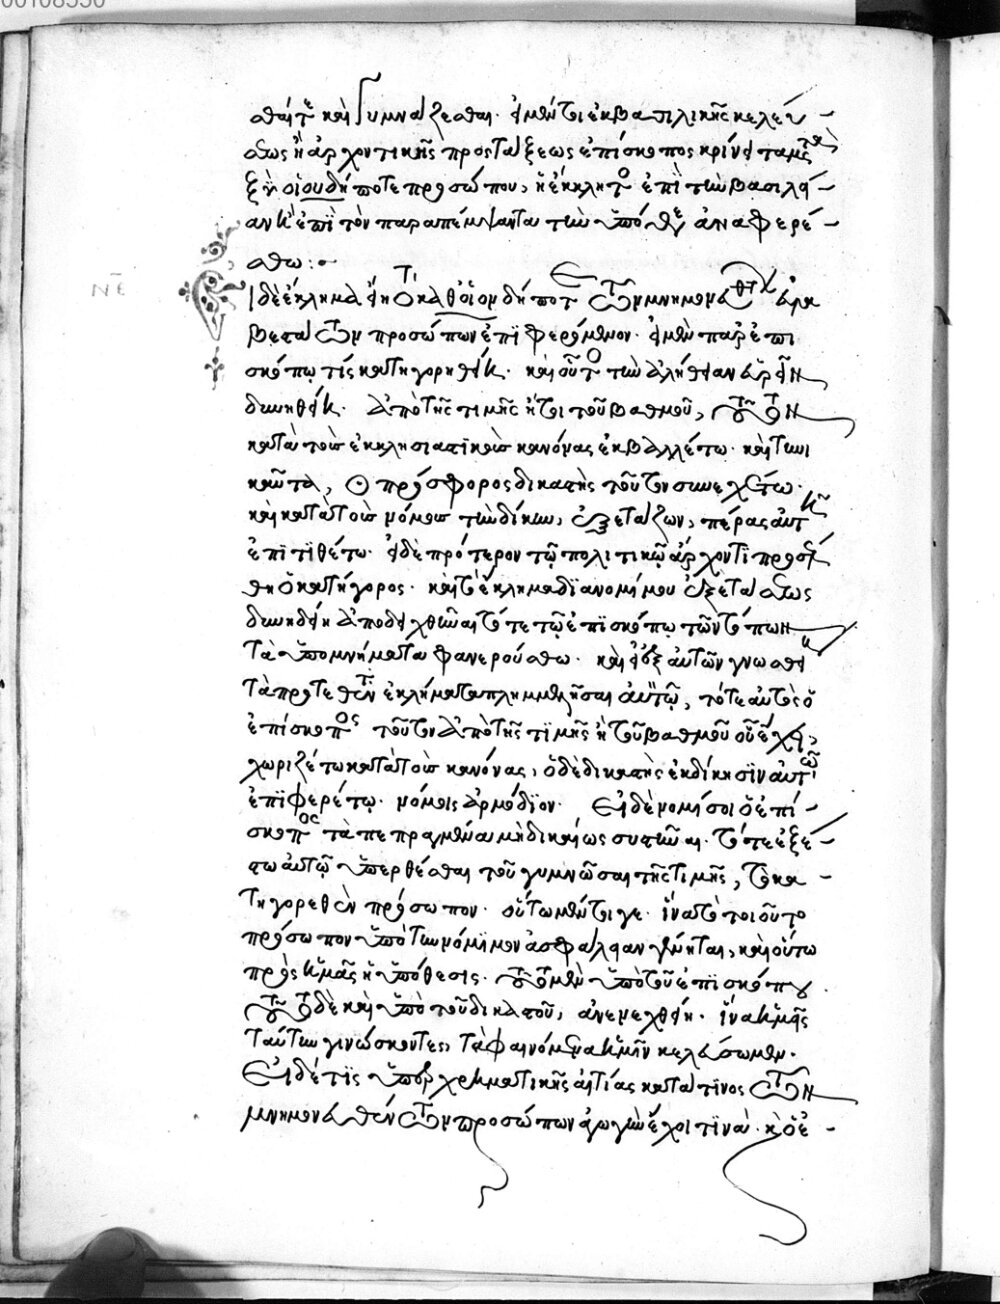 00108550
σθαί τε καὶ γυμνάζεσθαι. εἰ μέντοι ἐκ βασιλικῆς κελεύ-
σεως ἢ ἀρχοντικῆς προστάξεως ἐπίσκοπος κρίνει μετα-
ξὺ οἱουδήποτε προσώπου, ἡ ἔκκλητος ἐπὶ τὴν βασιλεί-
αν ἢ ἐπὶ τὸν παραπέμψαντα τὴν ὑπόθεσιν ἀναφερέ-
σθω:
Εἰ δὲ ἔγκλημα εἴη ὁ καθ' οἱουδήποτε τῶν μνημονευθέντων εὐλα
βεστάτων προσώπων ἐπιφερόμενον. εἰ μὲν παρ' ἐπι
σκόπῳ τὶς κατηγορηθείη. καὶ οὗτος τὴν ἀλήθειαν εὑρεῖν
δυνηθείη. ἀπὸ τῆς τιμῆς ἤτοι τοῦ βαθμοῦ, τοῦτον
κατὰ τοὺς ἐκκλησιαστικοὺς κανόνας ἐκβαλλέτω. καὶ τηνι
καῦτα, ὁ πρόσφορος δικαστὴς τοῦτον συνεχέτω.
καὶ κατὰ τοὺς νόμους τὴν δίκην, ἐξετάζων, πέρας αὐτῇ
ἐπιτιθέτω. εἰ δὲ πρότερον τῷ πολιτικῷ ἄρχοντι προσέλ
θῃ ὁ κατήγορος. καὶ τὸ ἔγκλημα διὰ νομίμου ἐξετάσεως
δυνηθείη ἀποδειχθῆναι τότε τῷ ἐπισκόπῳ τῶν τόπων
τὰ ὑπομνήματα φανερούσθω. καὶ εἰ ἐξ αὐτῶν γνωσθῇ
τὰ προτεθέντα ἐγκλήματα πλημμελῆσαι αὐτῷ, τότε αὐτὸς ὁ
ἐπίσκοπος τοῦτον ἀπὸ τῆς τιμῆς ἢ τοῦ βαθμοῦ οὗ ἔχει,
χωριζέτω κατὰ τοὺς κανόνας, ὁ δὲ δικαστὴς ἐκδίκησιν αὐτῷ
ἐπιφερέτω. νόμοις ἁρμόδιον. Εἰ δὲ νομίσοι ὁ ἐπί-
σκοπος τὰ πεπραγμένα μὴ δικαίως συστῆναι. τότε ἐξέ-
στω αὐτῷ ὑπερθέσθαι τοῦ γυμνῶσαι τῆς τιμῆς, τὸ κα-
τηγορεθὲν πρόσωπον. οὕτω μέντοι γε. ἵνα τὸ τοιοῦτο
πρόσωπον ὑπὸ τὴν νόμιμον ἀσφάλειαν γένηται, καὶ οὕτω
πρὸς ἡμᾶς ἡ ὑπόθεσις. τοῦτο μὲν ὑπὸ τοῦ ἐπισκόπου
τοῦτο δὲ καὶ ὑπὸ τοῦ δικαστοῦ, ἀνενεχθείη. ἵνα ἡμεῖς
ταύτην γινώσκοντες, τὰ φαινόμενα ἡμῖν κελεύσωμεν.
Εἰ δέ τις ὑπὲρ χρηματικῆς αἰτίας κατά τινος τῶν
μνημονευθέντων προσώπων ἀγωγὴν ἔχοι τινά. καὶ ὁ ἐ-